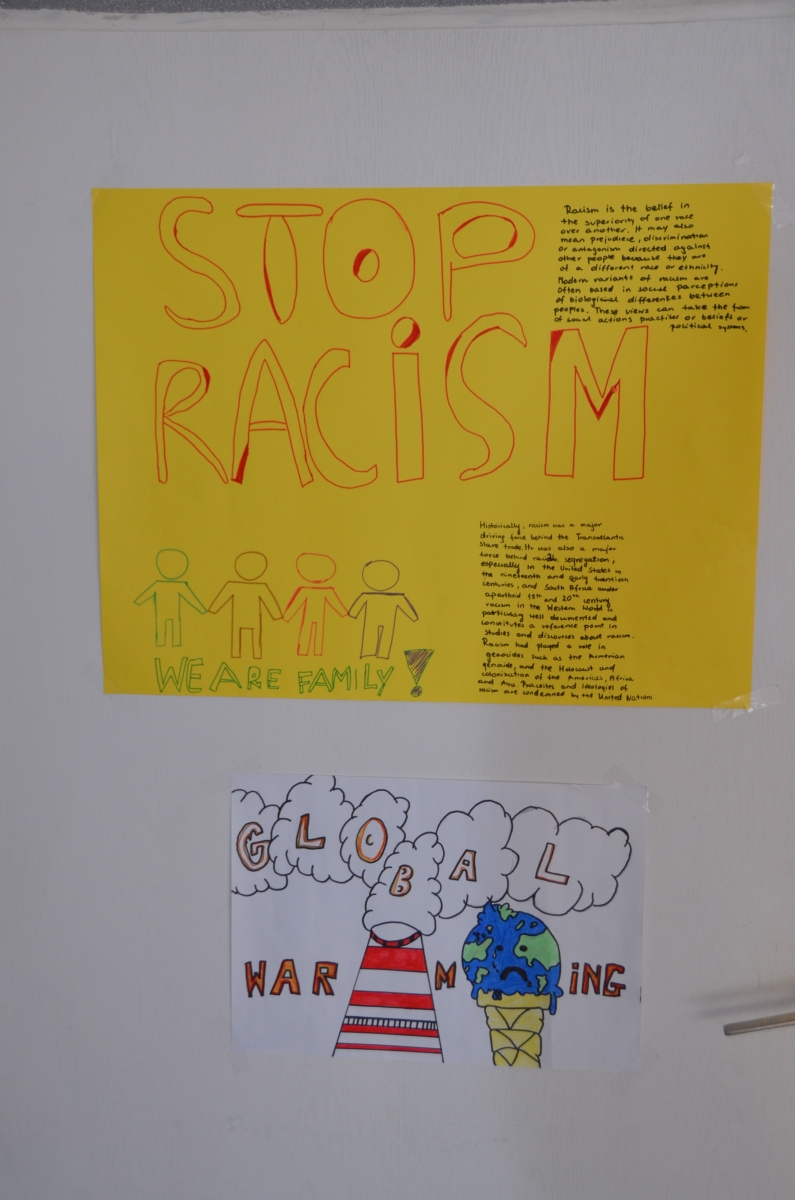 STOP
RACiSM
Racism is the belief in
the superiority of one race
over another. It may also
mean prejudice, discrimination
or antagonism directed against
other people because they are
of a different race or ethnicity.
Modern variants of racism are
often based in social perceptions
of biological differences between
peoples. These views can take the form
of social actions practises or beliefs or
political systems.
Historically, racism was a major
driving force behind the Transatlantic
slave trade. It was also a major
force behind racial segregation,
especially in the United States in
the nineteenth and early twentieth
centuries, and South Africa under
apartheid 19th and 20th century
racism in the Western World is
particulary well documented and
constitutes a reference point in
studies and discourses about racism.
Racism had played a role in
genocides such as the Armenian
genocide, and the Holocaust and
colonization of the Americas, Africa
and Asia Practites and ideologies of
racism are condemned by the United Nations
WE ARE FAMILY!
GLOBAL
WARMiNG